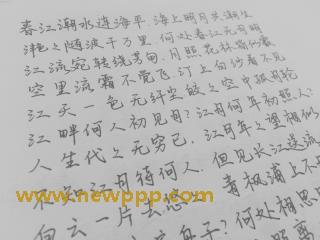 春江潮水连海平,海上明月共潮生
滟之随波千万里,何处春江无月明
江流宛转绕芳甸,月照花林皆似霰
空里流霜不觉飞,汀上白沙看不见
江天一色无纤尘皎之空中孤月轮
江畔何人初见月?江月何年初照人?
人生代之无穷已,江月年之望相似
不知江月待何人,但见长江送流
白云一片去悠 青枫浦上不
www.newppp.com
扁舟子?何处相思